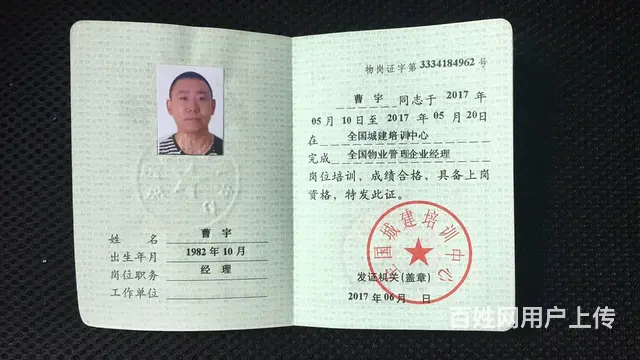 姓名 曹宇
出生年月 1982年10月
岗位职务 经理
工作单位
物岗证字第3334184962号
曹宇 同志于 2017 年
05 月 10 日至 2017 年 05 月 20 日
在 全国城建培训中心
完成 全国物业管理企业经理
岗位培训，成绩合格，具备上岗
资格，特发此证。
全国城建培训中心
发证机关(盖章)
2017 年 06 月 日
百姓网用户上传